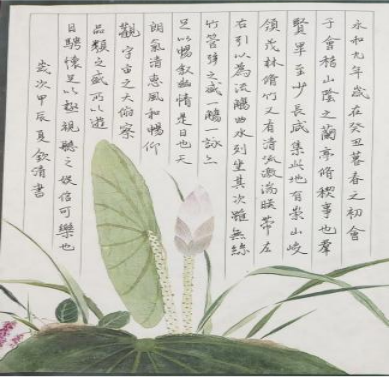 永和九年歲在癸丑暮春之初會
于會稽山陰之蘭亭脩稧事也羣
賢畢至少長咸集此地有崇山峻
領茂林脩竹又有清流激湍映帶左
右引以為流觴曲水列坐其次雖無絲
竹管弦之盛一觴一詠亦
足以暢敘幽情是日也天
朗氣清惠風和暢仰
觀宇宙之大俯察
品類之盛所以遊
目騁懷足以極視聽之娛信可樂也
歲次甲辰夏欽清書